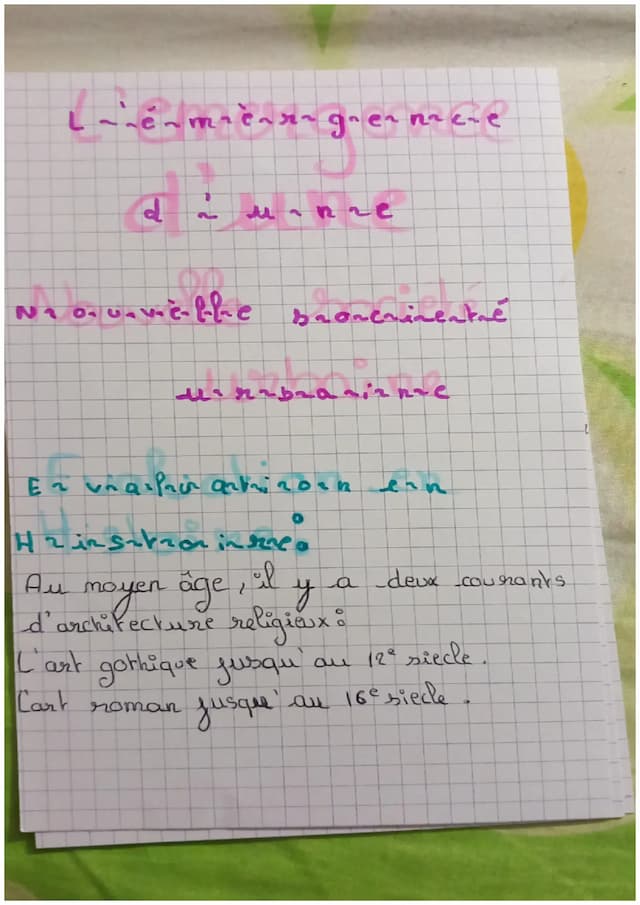 L'émèrgence
d'une
Nouvèlle société
urbaine
Evaluation en
Histoire :
Au moyen âge, il y a deux courants
d'architecture religieux :
L'art gothique jusqu'au 12e siecle.
L'art roman jusqu'au 16e siecle.